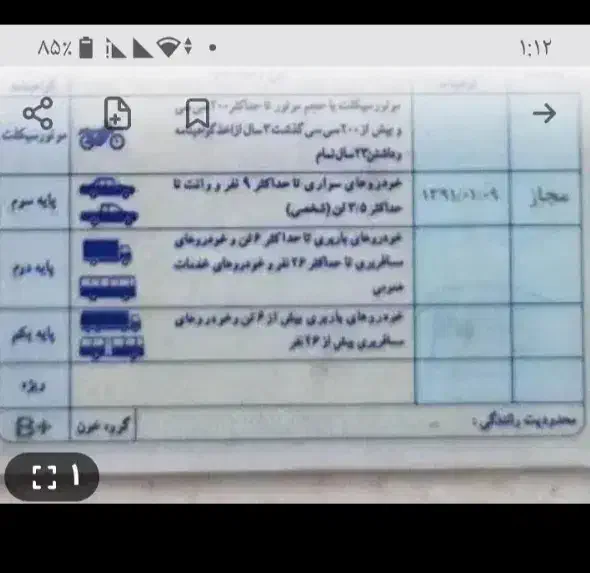 ۸۵٪
۱:۱۲
موتورسیکلت با حجم موتور تا حداکثر ۲۰۰ سی سی
و بیش از ۲۰۰ سی سی گذشت ۲ سال از اخذ گواهینامه
وداشتن ۲۳ سال تمام
موتورسیکلت
خودروهای سواری تا حداکثر ۹ نفر و وانت تا
حداکثر ۳/۵ تن (شخصی)
پایه سوم
۱۳۹۱/۰۱/۰۹
مجاز
خودروهای باربری تا حداکثر ۶ تن و خودروهای
مسافربری تا حداکثر ۲۶ نفر و خودروهای خدمات
عمومی
پایه دوم
خودروهای باربری بیش از ۶ تن وخودروهای
مسافربری بیش از ۲۶ نفر
پایه یکم
ویژه
محدودیت رانندگی :
گروه خون
B+
۱